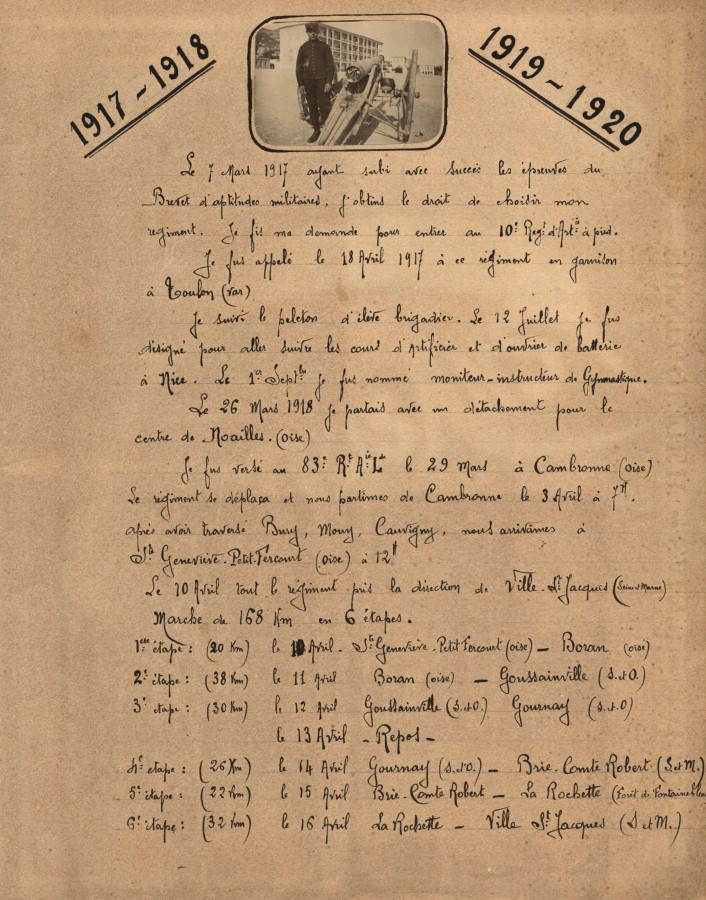 1917 - 1918
1919 - 1920
Le 7 Mars 1917 ayant subi avec succès les épreuves du
Brevet d'aptitudes militaires, j'obtins le droit de choisir mon
régiment. Je fis ma demande pour entrer au 10e Regt d'Artie à pied.
Je fus appelé le 18 Avril 1917 à ce régiment en garnison
à Toulon (var)
Je suivi le peleton d'élève brigadier. Le 12 Juillet je fus
désigné pour aller suivre les cours d'Artificier et d'ouvrier de batterie
à Nice. Le 1er Septbre je fus nommé moniteur-instructeur de Gymnastique.
Le 26 Mars 1918 je partais avec un détachement pour le
centre de Noailles. (oise)
Je fus versé au 83e Rt Aie Lde le 29 Mars à Cambronne (oise)
Le régiment se déplaça et nous partîmes de Cambronne le 3 Avril à 7H.
après avoir traversé Bury, Mouy, Cauvigny, nous arrivâmes à
Ste Geneviève-Petit-Fercourt (oise) à 12H
Le 10 Avril tout le régiment pris la direction de Ville-St Jacques (Seine et Marne)
Marche de 168 Km en 6 étapes.
1ère étape : (20 Km) le 10 Avril - Ste Geneviève-Petit Fercourt (oise) - Boran (oise)
2e étape : (38 Km) le 11 Avril Boran (oise) - Goussainville (S. et O.)
3e étape : (30 Km) le 12 Avril Goussainville (S. et O.) Gournay (S. et O)
le 13 Avril - Repos -
4e étape : (26 Km) le 14 Avril Gournay (S. et O.) - Brie-Comte Robert (S. et M.)
5e étape : (22 Km) le 15 Avril Brie-Comte Robert - La Rochette (Forêt de Fontainebleau
6e étape : (32 Km) le 16 Avril La Rochette - Ville St Jacques (S et M.)